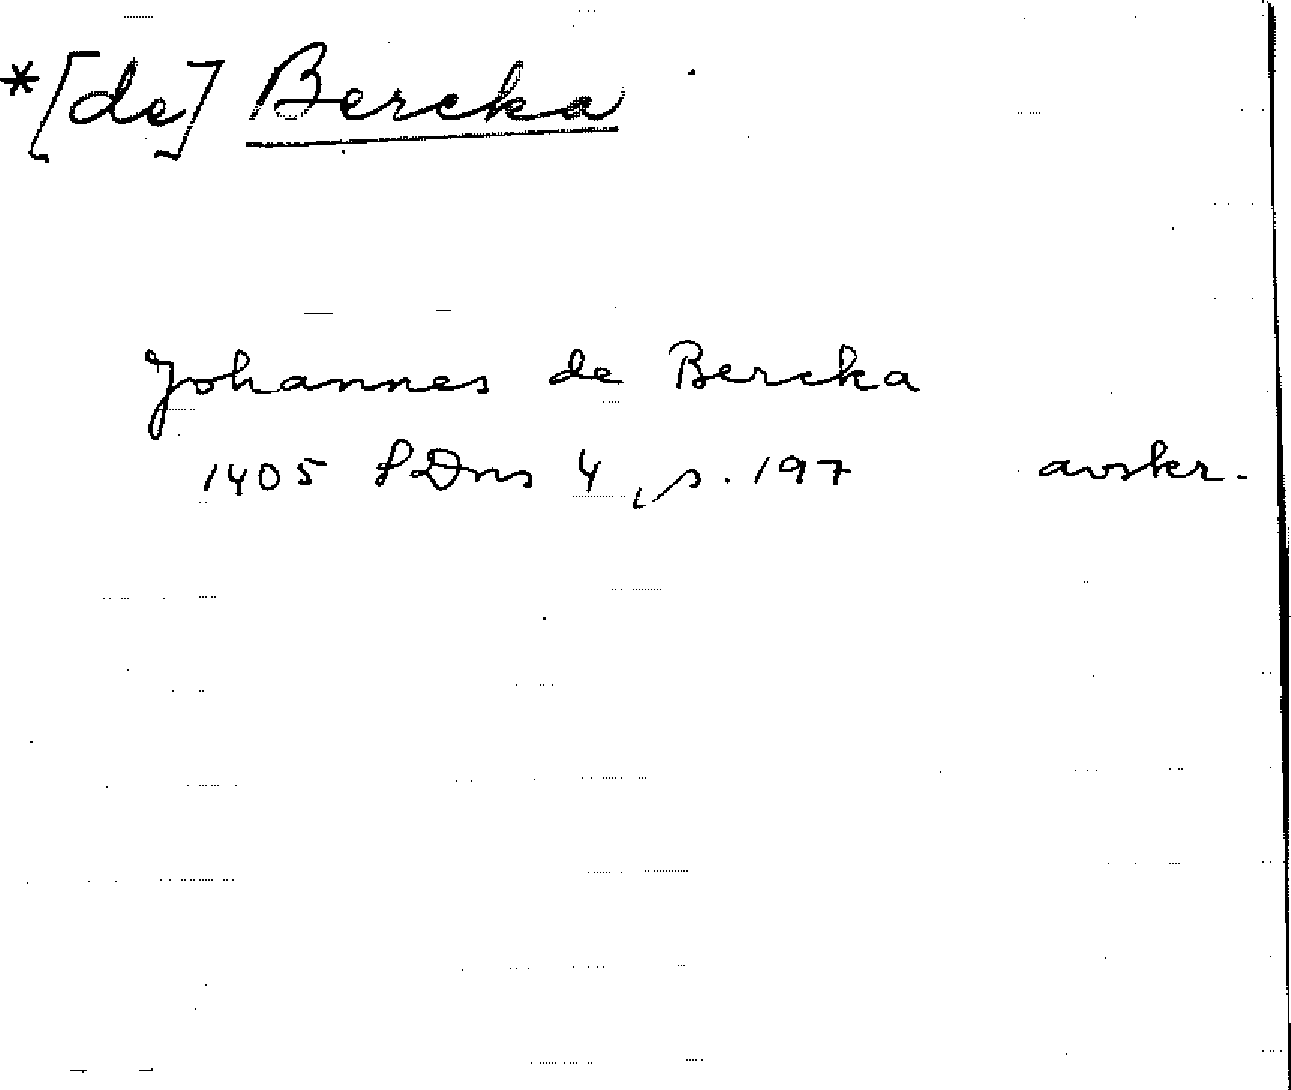 *[de] Bercka
Johannes de Bercka
1405 SDns 4, s. 197 avskr.